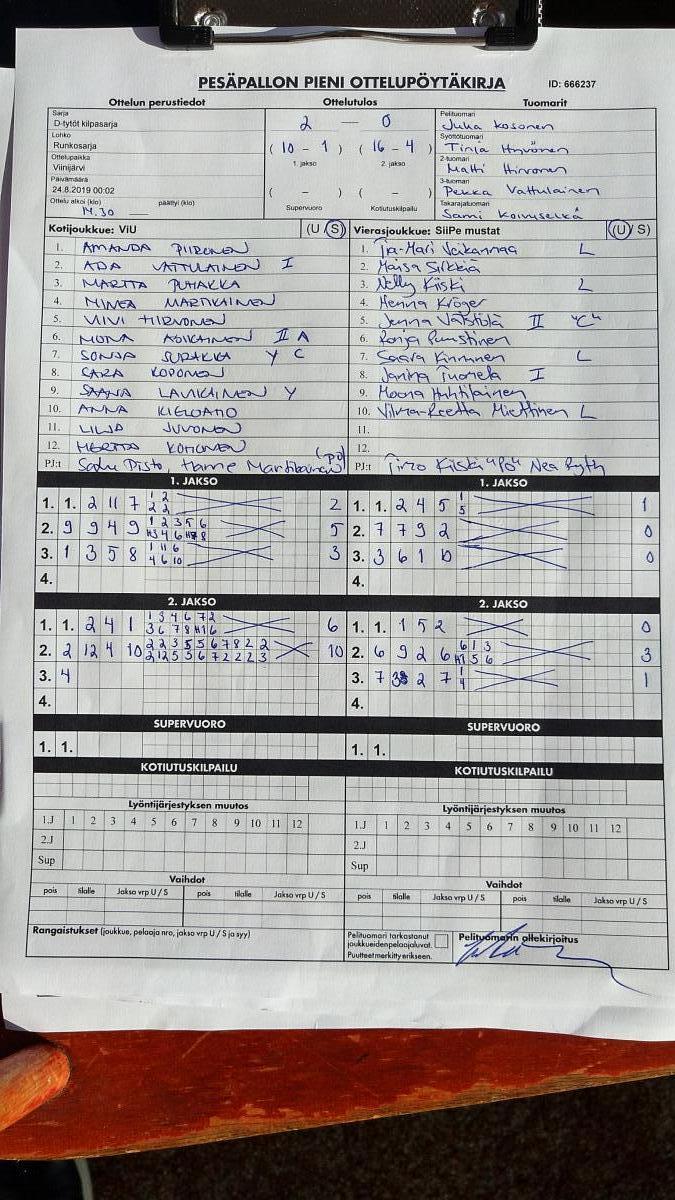 PESÄPALLON PIENI OTTELUPÖYTÄKIRJA ID: 666237
Ottelun perustiedot Ottelutulos Tuomarit
Sarja
D-tytöt kilpasarja
Lohko
Runkosarja
Ottelupaikka
Viinijärvi
Päivämäärä
24.8.2019 00:02
Ottelu alkoi (klo) päättyi (klo)
14.30
2 — 0
( 10 - 1 ) ( 16 - 4 )
1. jakso 2. jakso
( - ) ( - )
Supervuoro Kotiutuskilpailu
Pelituomari
Juha Kosonen
Syöttötuomari
Tinja Hirvonen
2-tuomari
Matti Hirvonen
3-tuomari
Pekka Vattulainen
Takarajatuomari
Sami Koivuselkä
Kotijoukkue: ViU (U / S)
1. AMANDA PIIRONEN
2. ADA VATTULAINEN I
3. MARTTA PUHAKKA
4. MINEA MARTIKAINEN
5. VIIVI HIRVONEN
6. MONA ASIKAINEN II A
7. SONJA SURAKKA Y C
8. SARA KOPONEN
9. SAANA LAVIKAINEN Y
10. ANNA KIELOAHO
11. LILJA JUVONEN
12. MERTTA KOHONEN
PJ:t Satu Disto, Hanne Martikainen (PJ)
Vierasjoukkue: SiiPe mustat (U / S)
1. Iia-Mari Veikannaa L
2. Maisa Sirkkiä
3. Nelly Kiiski L
4. Henna Kröger
5. Jenna Vatstola II "C"
6. Ronja Puustinen
7. Saara Kinnunen L
8. Janina Tuomela I
9. Moona Huhtilainen
10. Vilma-Reetta Miettinen L
11.
12.
PJ:t Timo Kiiski "PJ" Nea Ryth
1. JAKSO
1. 1. 2 11 7 1 2 2
2 2
2. 9 9 4 9 1 2 3 5 6 5
3. 1 3 5 8 1 11 6 3
4 6 10
4.
1. JAKSO
1. 1. 2 4 5 1 1
5
2. 7 7 9 2 0
3. 3 6 1 10 0
4.
2. JAKSO
1. 1. 2 4 1 1 3 4 6 7 2 6
2. 2 12 4 10 2 2 3 5 5 6 7 8 2 2 10
2 12 5 5 6 7 2 2 2 3
3. 4
4.
2. JAKSO
1. 1. 1 5 2 0
2. 6 9 2 6 6 1 3 3
3. 7 2 7 1 1
4
4.
SUPERVUORO
1. 1.
SUPERVUORO
1. 1.
KOTIUTUSKILPAILU
KOTIUTUSKILPAILU
Lyöntijärjestyksen muutos
1.J 1 2 3 4 5 6 7 8 9 10 11 12
2.J
Sup
Lyöntijärjestyksen muutos
1.J 1 2 3 4 5 6 7 8 9 10 11 12
2.J
Sup
Vaihdot
pois tilalle Jakso vrp U / S pois tilalle Jakso vrp U / S
Vaihdot
pois tilalle Jakso vrp U / S pois tilalle Jakso vrp U / S
Rangaistukset (joukkue, pelaaja nro, jakso vrp U / S ja syy)
Pelituomari tarkastanut
joukkueiden pelaajaluvat.
Puutteet merkitty erikseen.
Pelituomarin allekirjoitus